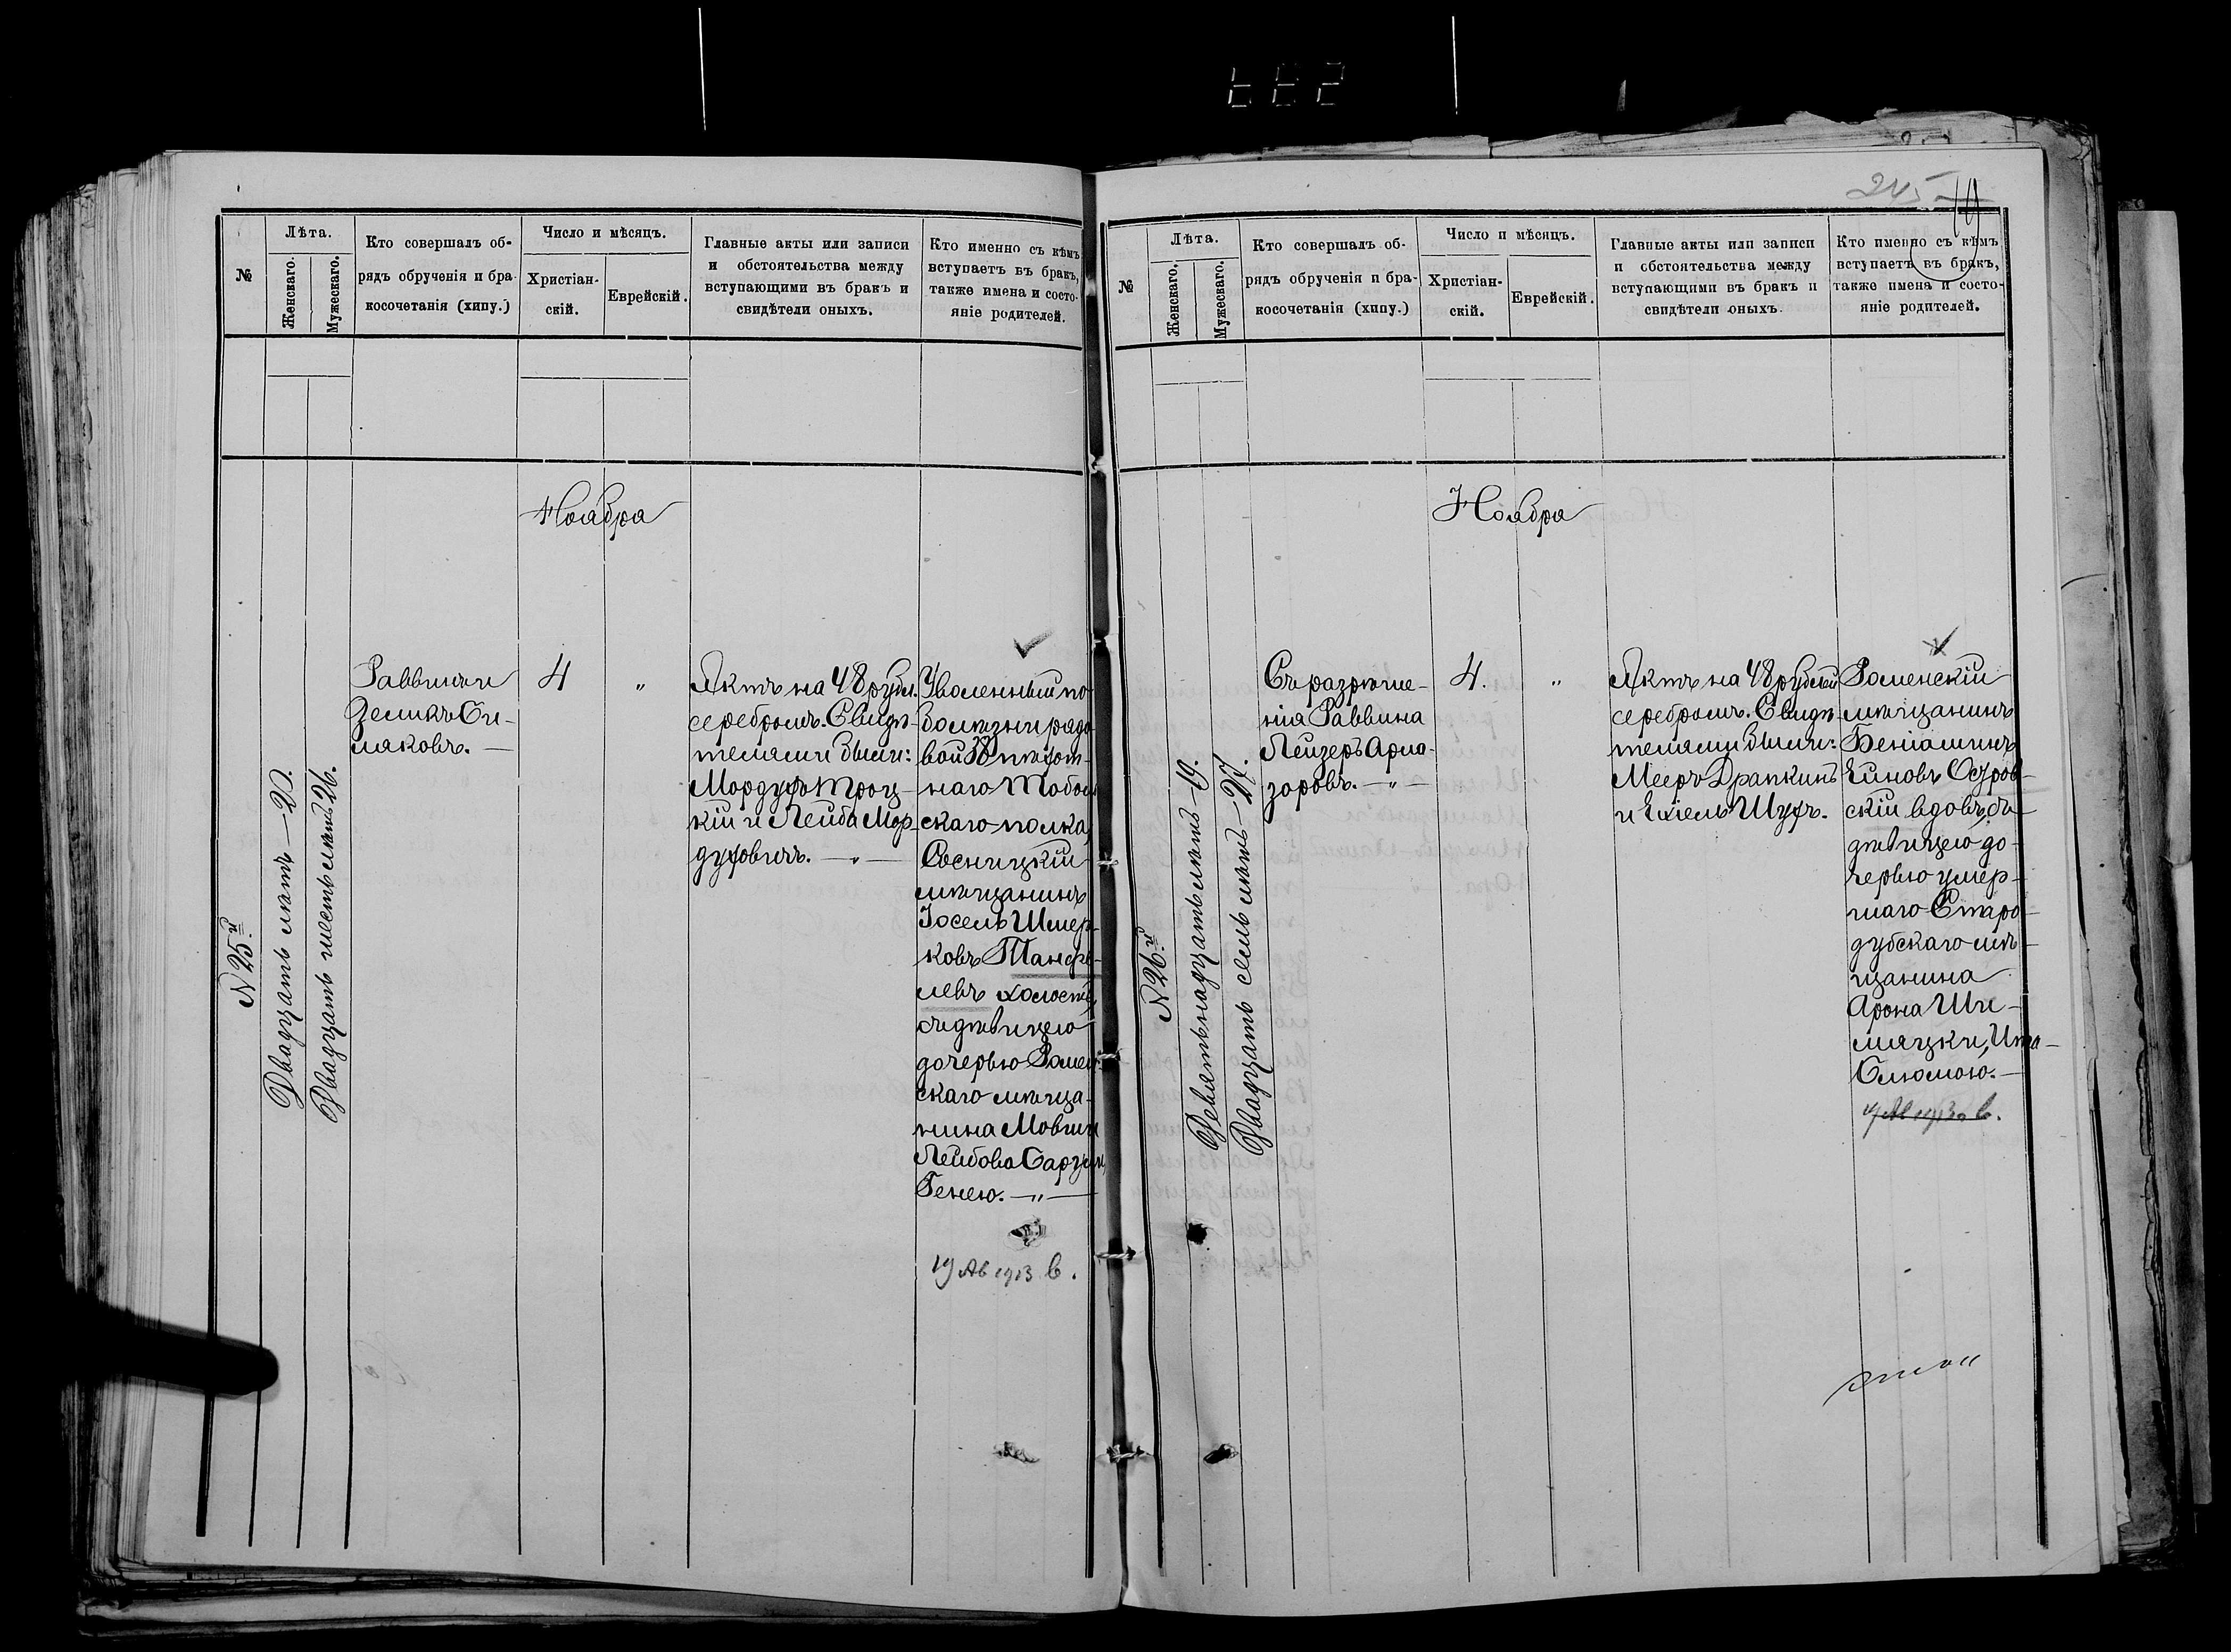 №
Лѣта.
Женскаго.
Мужескаго.
Кто совершалъ об-
рядъ обрученія и бра-
косочетанія (хипу.)
Число и мѣсяцъ.
Христіан-
скій.
Еврейскій.
Главные акты или записи
и обстоятельства между
вступающими въ бракъ и
свидѣтели оныхъ.
Кто именно съ кѣмъ
вступаетъ въ бракъ,
также имена и состо-
яніе родителей.
Ноября
N 25.й
Двадцать лѣтъ — 20.
Двадцать шесть лѣтъ 26.
Раввинъ
Зеликъ Си-
маковъ. —
4
"
Актъ на 48 рубл.
серебромъ. Свидѣ-
телями были:
Мордухъ Троц-
кій и Лейба Мор-
духовичъ. — " —
Уволенный по
болѣзни рядо
вой 38 пѣхот-
наго Тоболь
скаго полка,
Сосницкій
мѣщанинъ
Іосель Шмер-
ковъ Танфи-
левъ холостъ,
съ дѣвицею
дочерью Ромен-
скаго мѣща-
нина Мовши
Лейбова
Генею. — " —
19 Ав 1913 в.
245
№
Лѣта.
Женскаго.
Мужескаго.
Кто совершалъ об-
рядъ обрученія и бра-
косочетанія (хипу.)
Число и мѣсяцъ.
Христіан-
скій.
Еврейскій.
Главные акты или записи
и обстоятельства между
вступающими въ бракъ и
свидѣтели оныхъ.
Кто именно съ кѣмъ
вступаетъ въ бракъ,
также имена и состо-
яніе родителей.
Ноября
N 26.й
Девятьнадцать лѣтъ — 19.
Двадцать семь лѣтъ — 27.
Съ разрѣше-
нія Раввина
Лейзеръ Арла-
зоровъ. — " —
4.
"
Актъ на 48 рублей
серебромъ. Свидѣ-
телями были:
Мееръ Драпкинъ
и Ехіель Шуфъ.
Роменскій
мѣщанинъ
Беніаминъ
Ейновъ Остров-
скій вдовъ, съ
дѣвицею до-
черью умер-
шаго Старо-
дубскаго мѣ-
щанина
Арона Ши-
мяцки, Ита-
Слюмою. —
19 Ав 1913 в.